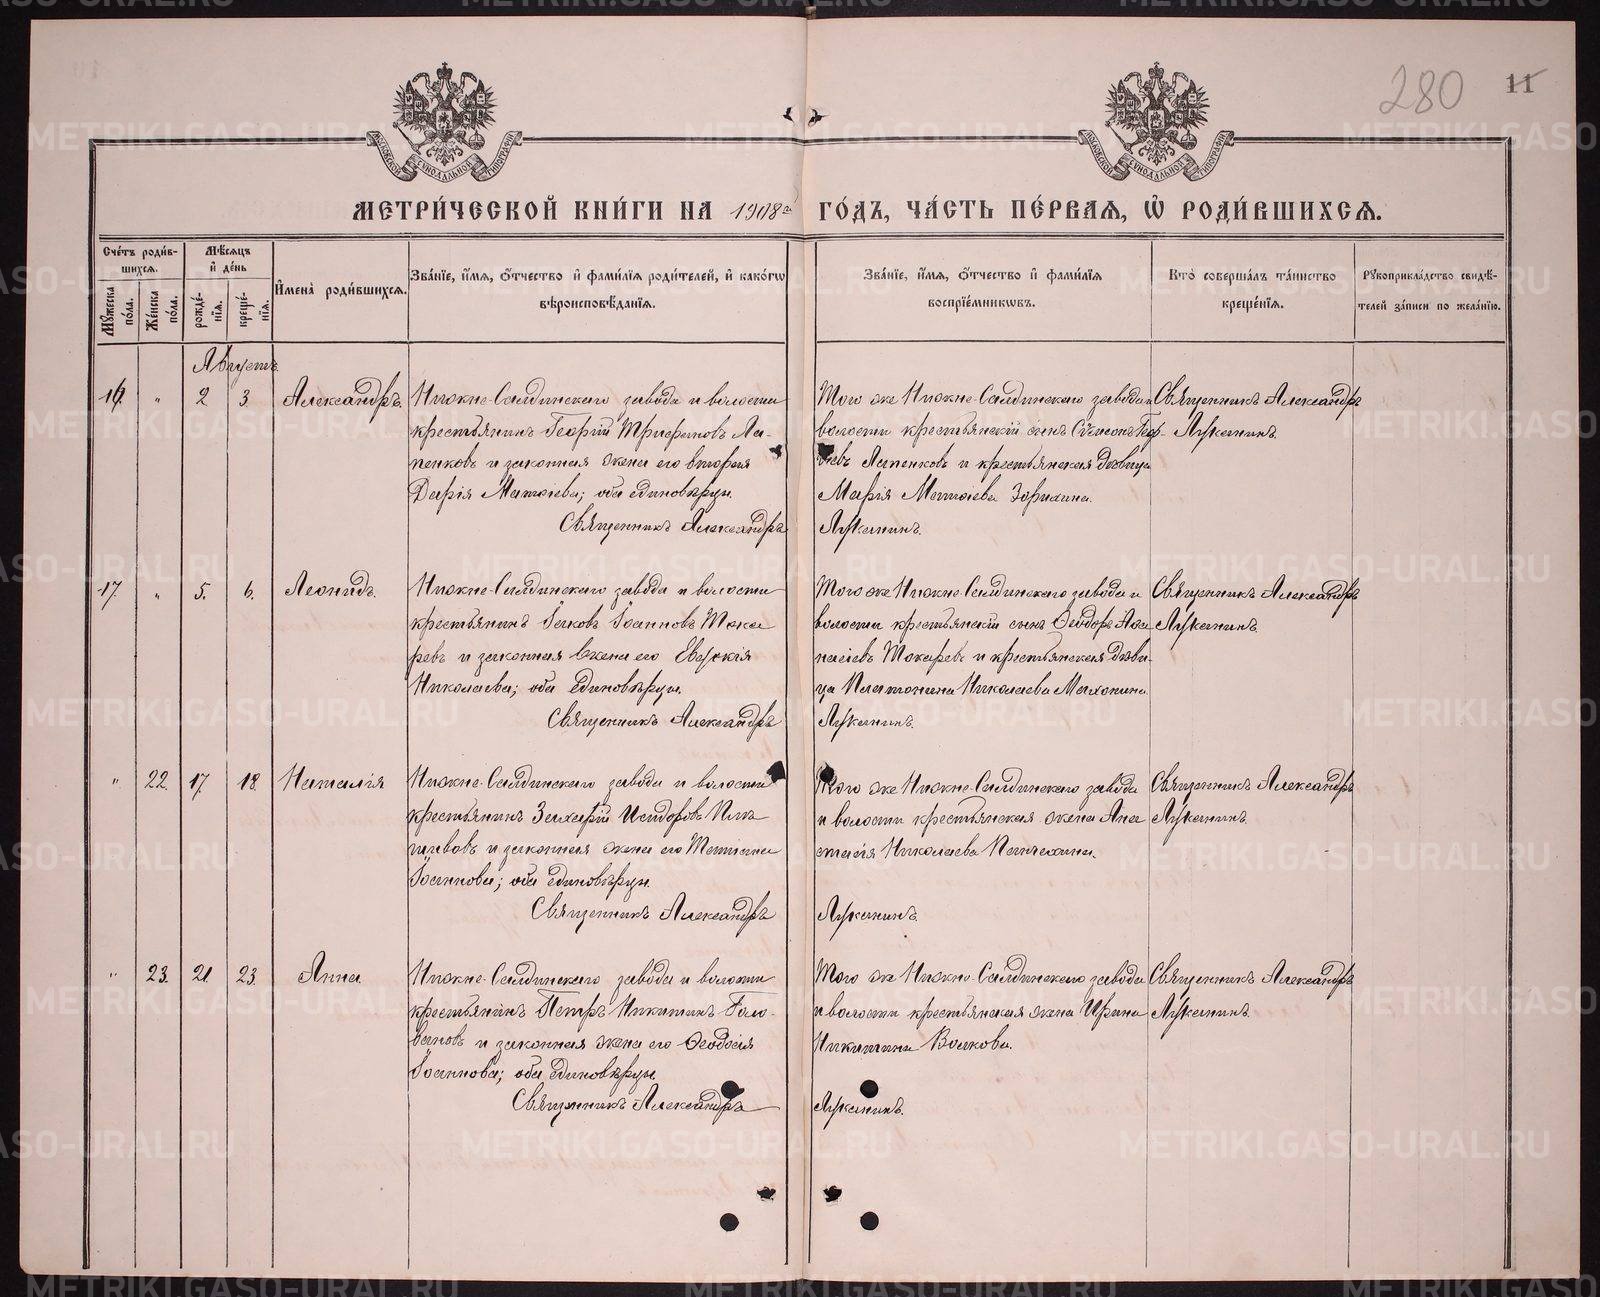 280 11
МЕТРИ́ЧЕСКОЙ КНИ́ГИ НА 1908й ГО́ДЪ, ЧА́СТЬ ПЕ́РВАЯ, Ѡ РОДИ́ВШИХСЯ.
Сче́тъ роди́в-
шихся.
Мꙋ́жеска по́ла.
Же́нска по́ла.
Мѣ́сяцъ
и҆ де́нь
рожде́-
нїя.
креще́-
нїя.
И҆мена̀ роди́вшихся.
Зва́нїе, и҆́мя, ѻ҆́тчество и҆ фами́лїя роди́телей, и҆ како́гѡ
вѣроисповѣ́данїя.
Зва́нїе, и҆́мя, ѻ҆́тчество и҆ фами́лїя
воспрїе́мникѡвъ.
Кто̀ соверша́лъ та́инство
креще́нїя.
Рꙋкоприкла́дство свидѣ́-
телей за́писи по жела́нїю.
Августъ.
16. " 2 3. Александръ.
Нижне-Салдинскаго завода и волости
крестьянинъ Георгій Трифановъ Ла-
пенковъ и законная жена его вторая
Дарія Матѳіева; оба единовѣрцы.
Священникъ Александръ
Того же Нижне-Салдинскаго завода и
волости крестьянскій сынъ
Лапенковъ и крестьянская дѣвица
Марія Матѳіева Зорихина.
Лукинъ.
Священникъ Александръ
17. " 5. 6. Леонидъ.
Нижне-Салдинскаго завода и волости
крестьянинъ Іаковъ Іоанновъ Тока
ревъ и законная жена его
Николаева; оба единовѣрцы.
Священникъ Александръ
Того же Нижне-Салдинскаго завода и
волости крестьянскій сынъ Ѳеодоръ Аѳа
насіевъ Токаревъ и крестьянская дѣви-
ца Платонина Николаева Махонина.
Священникъ Александръ
" 22. 17 18. Наталія
Нижне-Салдинскаго завода и волости
крестьянинъ Захарій Исидоровъ
и законная жена его Татіана
Іоаннова; оба единовѣрцы.
Священникъ Александръ
Того же Нижне-Салдинскаго завода
и волости крестьянская жена Ана
стасія Николаева
Священникъ Александръ
" 23. 21. 23. Анна.
Нижне-Салдинскаго завода и волости
крестьянинъ Петръ Никитинъ Голо-
вановъ и законная жена его Ѳеодосія
Іоаннова; оба единовѣрцы.
Священникъ Александръ
Того же Нижне-Салдинскаго завода
и волости крестьянская жена Ирина
Никитина Волкова.
Священникъ Александръ
METRIKI.GASO-URAL.RU